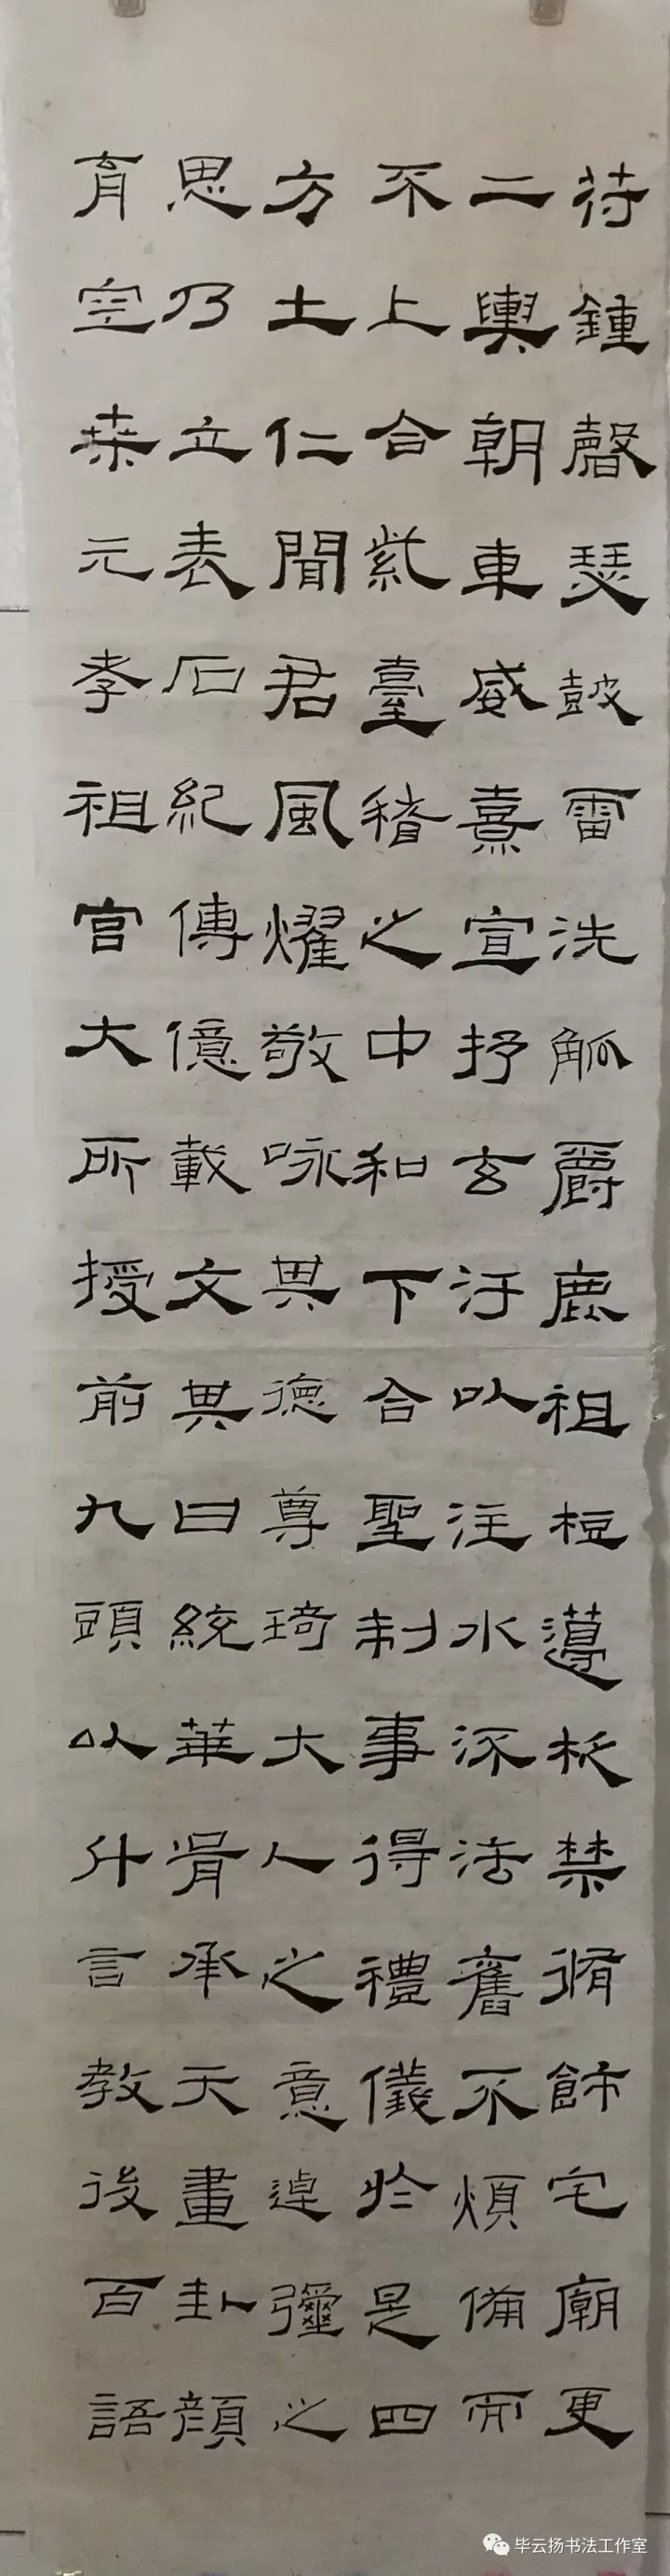 符鍾磬瑟鼓雷洗觚爵鹿柤梪籩柉禁脩飾宅廟更
二輿朝車威熹宣抒玄汙以注水流法舊不煩備而
不奢上合紫臺稽之中和下合聖制事得禮儀於是四
方土仁聞君風燿敬咏其德尊琦大人之意逴彌之
思乃立表石紀傳億載其文曰統華胥承天畫卦顏
育空桒孔制元孝俱祖紫宮大一所授前闓九頭以什言教後制百